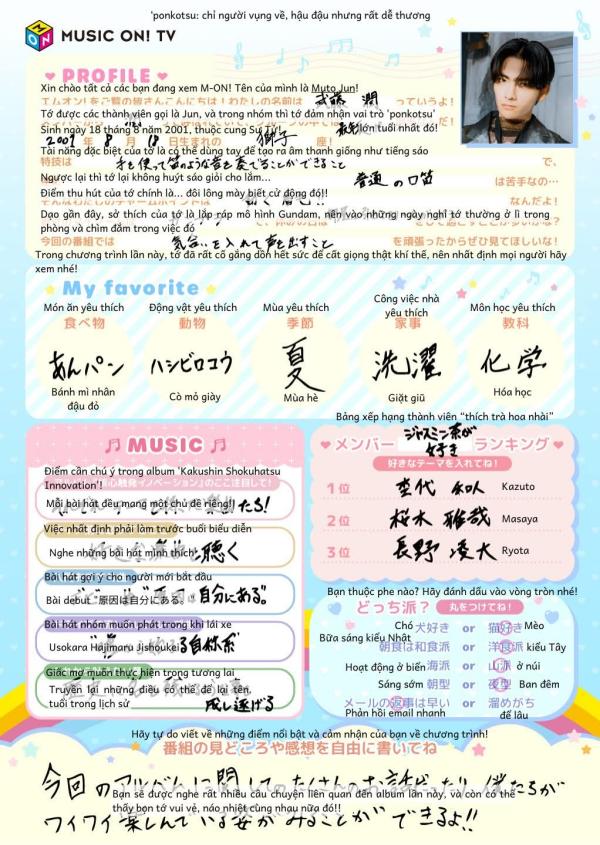 'ponkotsu: chỉ người vụng về, hậu đậu nhưng rất dễ thương
MUSIC ON! TV
PROFILE
Xin chào tất cả các bạn đang xem M-ON! Tên của mình là Muto Jun!
エムオン!をご覧の皆さんこんにちは!わたしの名前は 武藤 潤 っていうよ!
Tớ được các thành viên gọi là Jun, và trong nhóm thì tớ đảm nhận vai trò 'ponkotsu'
Sinh ngày 18 tháng 8 năm 2001, thuộc cung Sư Tử! lớn tuổi nhất đó!
2001 年 8 月 18 日生まれの 獅子 座!
Tài năng đặc biệt của tớ là có thể dùng tay để tạo ra âm thanh giống như tiếng sáo
特技は 手を使って笛のような音を奏でることができること で、
Ngược lại thì tớ lại không huýt sáo giỏi cho lắm...
普通の口笛 は苦手なの…
Điểm thu hút của tớ chính là... đôi lông mày biết cử động đó!!
なんだよ!
Dạo gần đây, sở thích của tớ là lắp ráp mô hình Gundam, nên vào những ngày nghỉ tớ thường ở lì trong
phòng và chìm đắm trong việc đó
今回の番組では 気合いを入れて声を出すこと を頑張ったからぜひ見てほしいな!
Trong chương trình lần này, tớ đã rất cố gắng dồn hết sức để cất giọng thật khí thế, nên nhất định mọi người hãy
xem nhé!
My favorite
Món ăn yêu thích Động vật yêu thích Mùa yêu thích Công việc nhà yêu thích Môn học yêu thích
食べ物 動物 季節 家事 教科
あんパン ハシビロコウ 夏 洗濯 化学
Bánh mì nhân đậu đỏ Cò mỏ giày Mùa hè Giặt giũ Hóa học
MUSIC
Điểm cần chú ý trong album 'Kakushin Shokuhatsu
Innovation'!
「核心触発イノベーション」のここに注目して!
Mỗi bài hát đều mang một chủ đề riêng!! たち!
Việc nhất định phải làm trước buổi biểu diễn
Nghe những bài hát mình thích 聴く
Bài hát gợi ý cho người mới bắt đầu
Bài debut "原因は自分にある。 自分にある。"
Bài hát nhóm muốn phát trong khi lái xe
Usokara Hajimaru Jishoukei る自称系
Giấc mơ muốn thực hiện trong tương lai
Truyền lại những điều có thể để lại tên
tuổi trong lịch sử 成し遂げる
Bảng xếp hạng thành viên "thích trà hoa nhài"
メンバー ジャスミン茶が好き ランキング
好きなテーマを入れてね!
1位 杢代 和人 Kazuto
2位 桜木 雅哉 Masaya
3位 長野 凌大 Ryota
Bạn thuộc phe nào? Hãy đánh dấu vào vòng tròn nhé!
どっち派? 丸をつけてね!
Chó 犬好き or 猫好き Mèo
Bữa sáng kiểu Nhật
朝食は和食派 or 洋食派 kiểu Tây
Hoạt động ở biển 海派 or 山派 ở núi
Sáng sớm 朝型 or 夜型 Ban đêm
メールの返事は早い or 溜めがち
Phản hồi email nhanh để lâu
Hãy tự do viết về những điểm nổi bật và cảm nhận của bạn về chương trình!
番組の見どころや感想を自由に書いてね
今回のアルバムに関してのたくさんのお話だったり、僕たちが
Bạn sẽ được nghe rất nhiều câu chuyện liên quan đến album lần này, và còn có thể
thấy bọn tớ vui vẻ, náo nhiệt cùng nhau nữa đó!!
ワイワイ楽しんでいる姿がみることができるよ!!